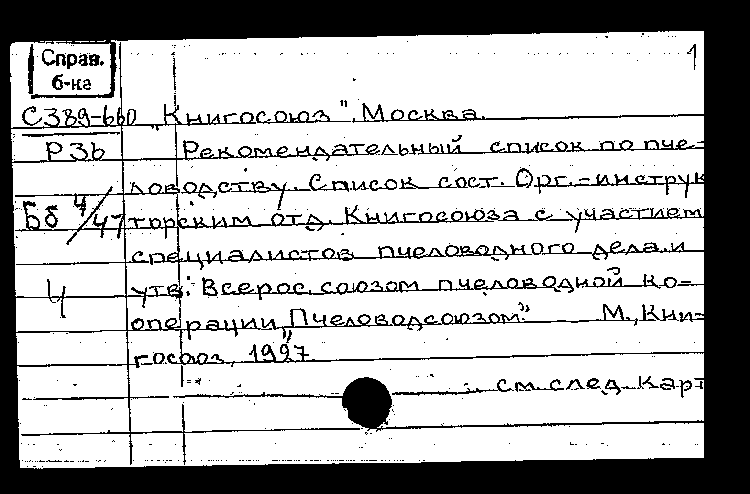 1
Справ.
б-ка
С389-660 „Книгосоюз", Москва.
Р36 Рекомендательный список по пче=
ловодству. Список сост. Орг.=инструк
Бб 4/47 торским отд. Книгосоюза с участием
специалистов пчеловодного дела и
Ч утв. Всерос. союзом пчеловодной ко=
операции „Пчеловодсоюзом". М., Кни=
госоюз, 1927.
см. след. карт